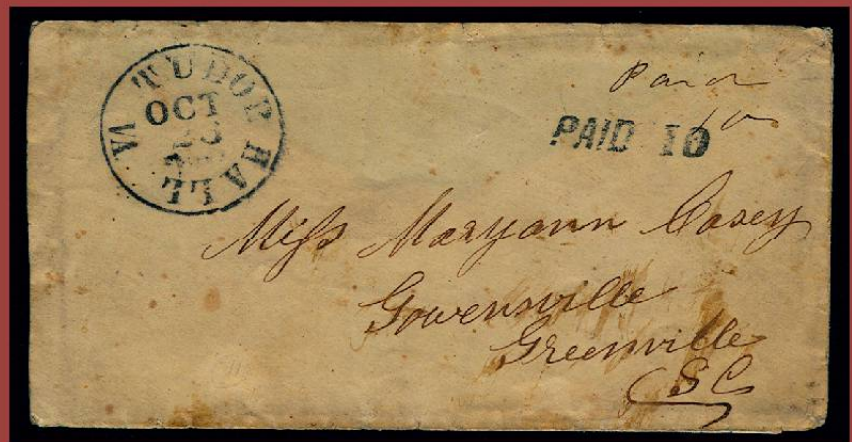 TUDOR HALL
OCT
VA
Paid
10
PAID 10
Miss Maryann Casey
Gowensville
Greenville
SC